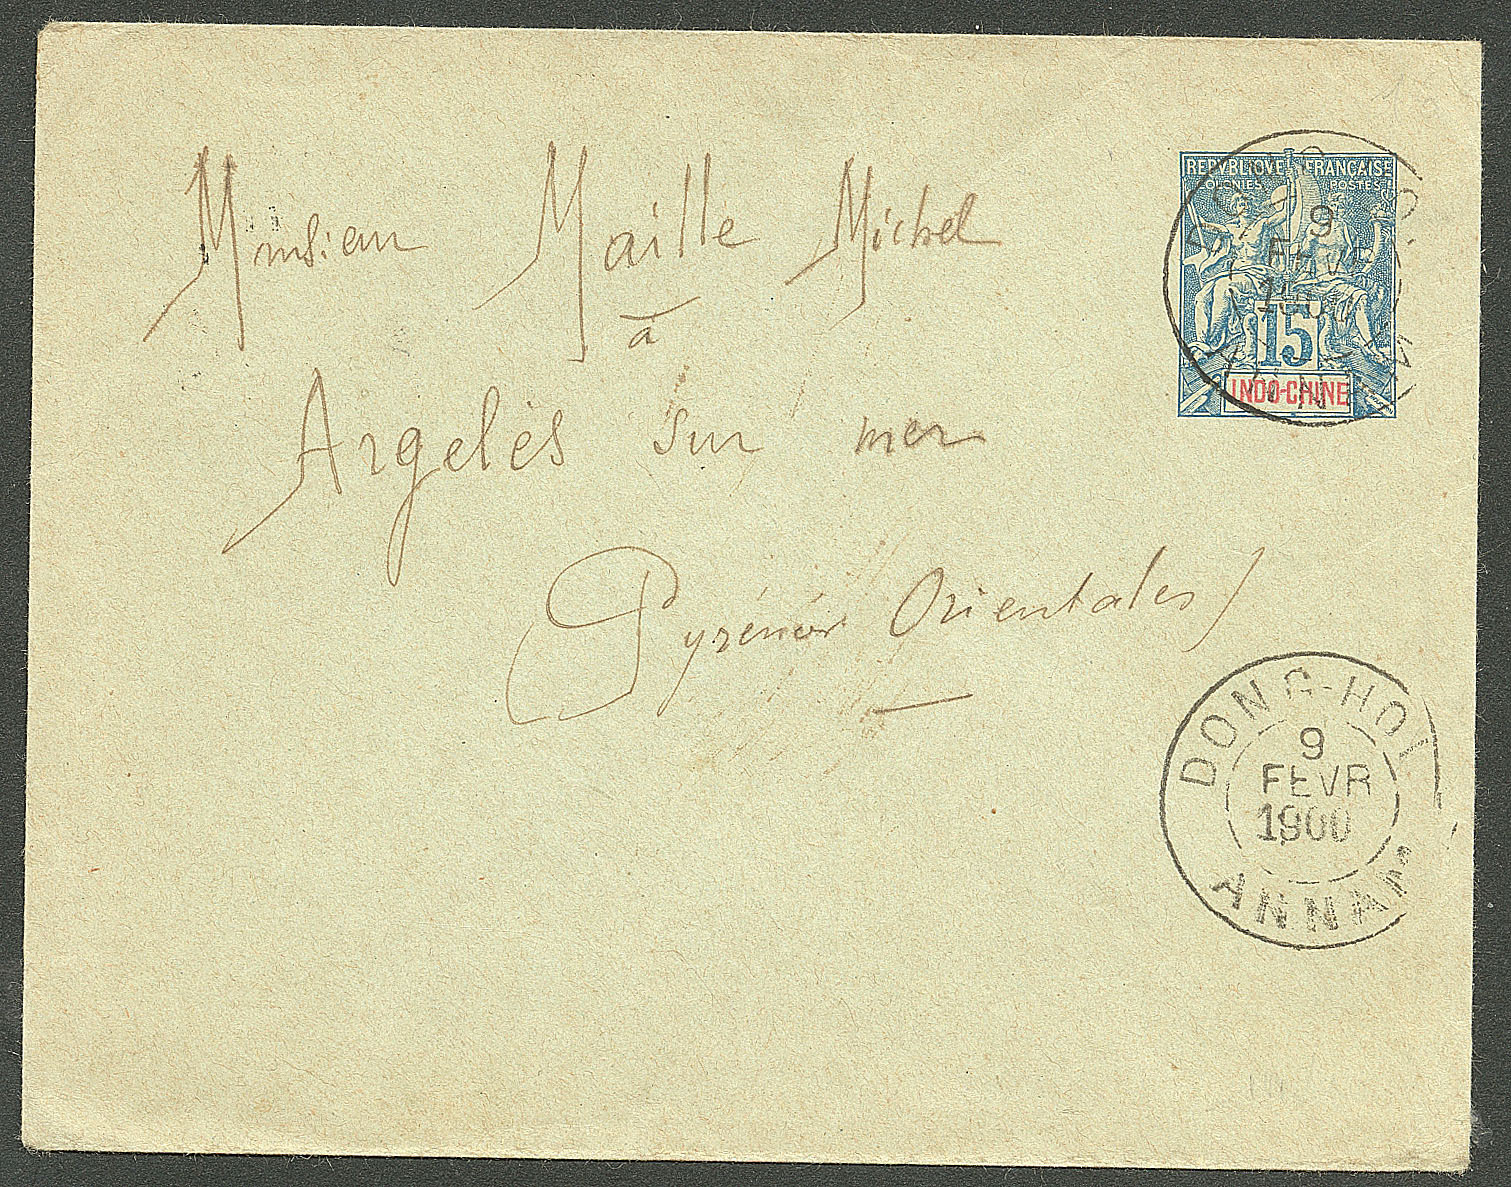 REPVBLIQVE FRANÇAISE
COLONIES POSTES
15
INDO-CHINE
9
Monsieur Maille Michel
à
Argelès sur mer
Pyrénées Orientales
DONG-HOI
9
FEVR
1900
ANNAM